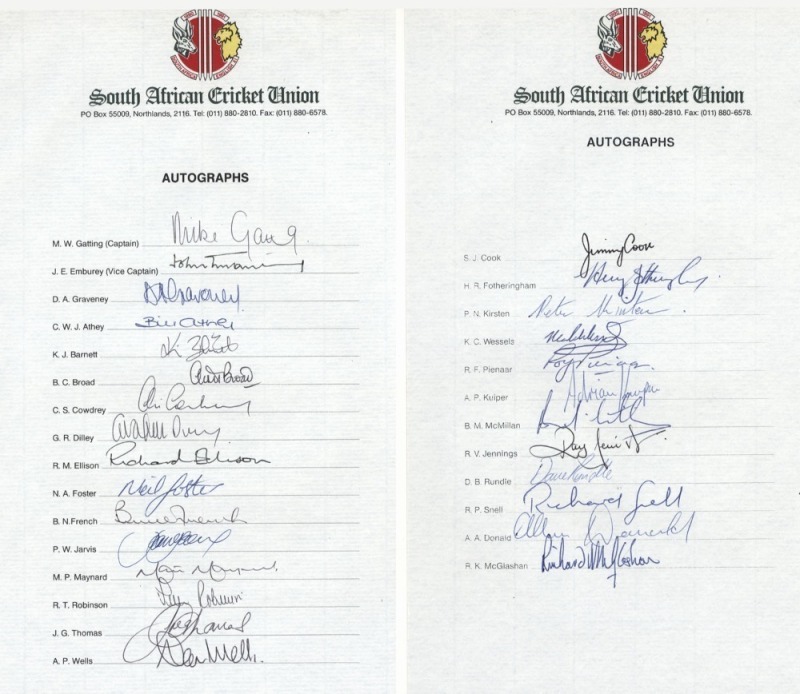 South African Cricket Union
PO Box 55009, Northlands, 2116. Tel: (011) 880-2810. Fax: (011) 880-6578.
AUTOGRAPHS
M. W. Gatting (Captain) Mike Gatting
J. E. Emburey (Vice Captain) John Emburey
D. A. Graveney D A Graveney
C. W. J. Athey Bill Athey
K. J. Barnett
B. C. Broad Chris Broad
C. S. Cowdrey Chris Cowdrey
G. R. Dilley Graham Dilley
R. M. Ellison Richard Ellison
N. A. Foster Neil Foster
B. N. French Bruce French
P. W. Jarvis
M. P. Maynard
R. T. Robinson Tim Robinson
J. G. Thomas
A. P. Wells Alan Wells.
South African Cricket Union
PO Box 55009, Northlands, 2116. Tel: (011) 880-2810. Fax: (011) 880-6578.
AUTOGRAPHS
S. J. Cook Jimmy Cook
H. R. Fotheringham
P. N. Kirsten Peter Kirsten
K. C. Wessels
R. F. Pienaar Roy Pienaar
A. P. Kuiper Adrian Kuiper
B. M. McMillan
R. V. Jennings Ray Jennings
D. B. Rundle Dave Rundle
R. P. Snell Richard Snell
A. A. Donald Allan Donald
R. K. McGlashan Richard McGlashan